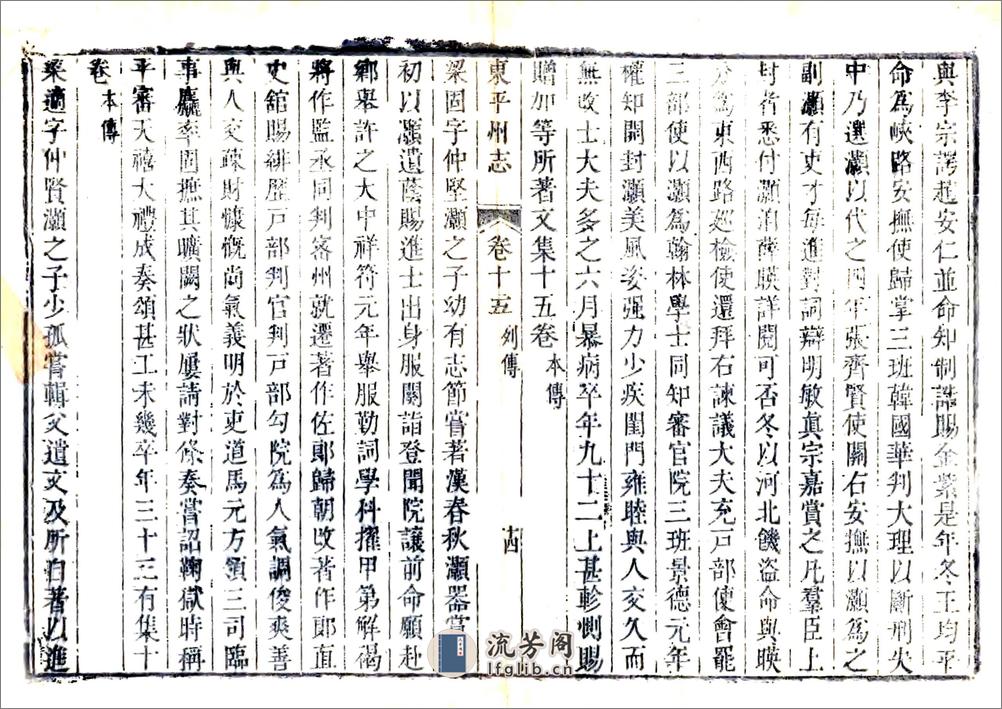 與李宗諤趙安仁並命知制誥賜金紫是年冬王均平
命為峽路安撫使歸掌三班韓國華判大理以斷刑失
中乃選灝以代之四年張齊賢使關右安撫以灝為之
副灝有吏才每進對詞辯明敏真宗嘉賞之凡羣臣上
封者悉付灝洎薛暎詳閱可否冬以河北饑盜命與暎
分為東西路巡檢使還拜右諫議大夫充戸部使會罷
三部使以灝為翰林學士同知審官院三班景德元年
權知開封灝美風姿强力少疾閨門雍睦與人交久而
無改士大夫多之六月暴病卒年九十二上甚軫惻賜
贈加等所著文集十五卷本傳
東平州志 卷十五 列傳 十四
梁固字仲堅灝之子幼有志節嘗著漢春秋灝器賞
初以灝遺蔭賜進士出身服闋詣登聞院讓前命願赴
鄉舉許之大中祥符元年舉服勤詞學科擢甲第解褐
將作監丞同判審州就遷著作佐郞歸朝改著作郞直
史舘賜緋歷戸部判官判戸部勾院為人氣調俊爽善
與人交疎財慷慨尚氣義明於吏道馬元方領三司臨
事麤率固撫其曠闕之狀屢請對條奏嘗詔鞠獄時稱
平審天禧大禮成奏頌甚工未幾卒年三十三有集十
卷本傳
梁適字仲賢灝之子少孤嘗輯父遺文及所自著以進
流芳阁
lfglib.cn